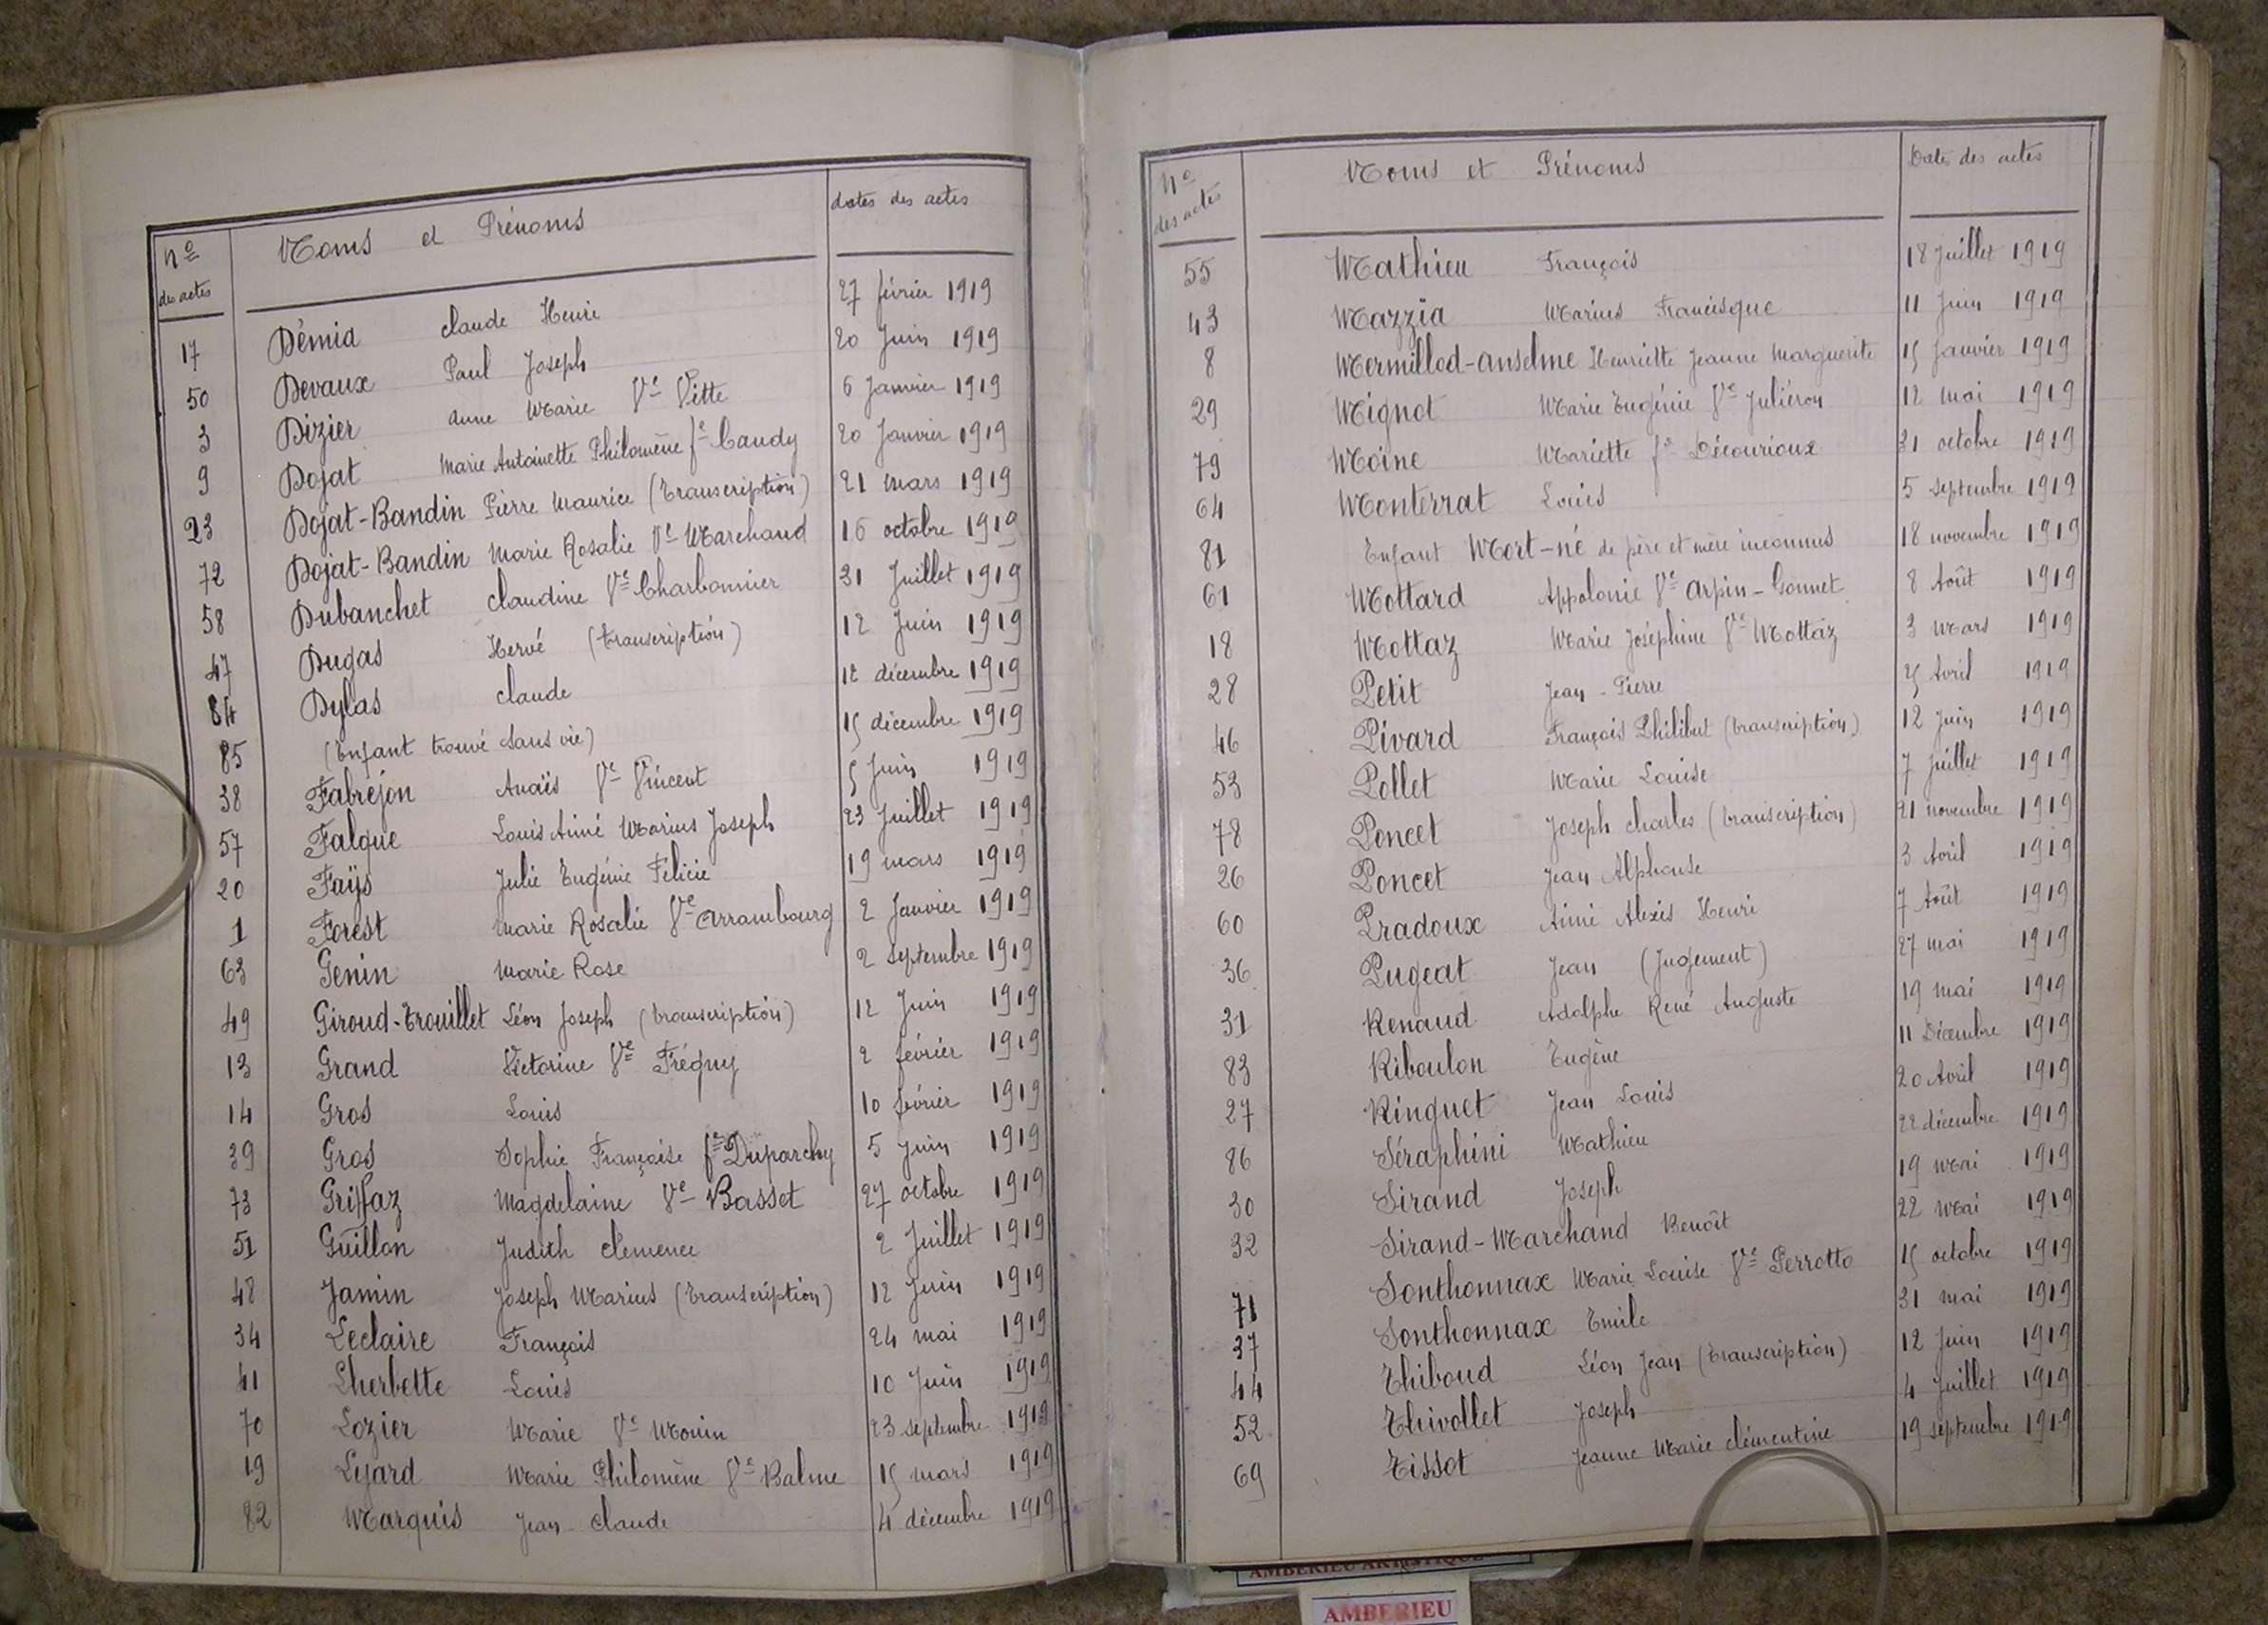 Nº des actes Noms et Prénoms dates des actes
17 Démia Claude Henri 27 février 1919
50 Devaux Paul Joseph 20 Juin 1919
3 Dizier Anne Marie Vve Vitte 6 Janvier 1919
9 Dojat Marie Antoinette Philomène fe Caudy 20 Janvier 1919
23 Dojat-Bandin Pierre Maurice (transcription) 21 mars 1919
72 Dojat-Bandin Marie Rosalie Ve Marchand 16 octobre 1919
58 Dubanchet Claudine Ve Charbonnier 31 Juillet 1919
47 Dugas Hervé (transcription) 12 Juin 1919
84 Dylas Claude 12 décembre 1919
85 (Enfant trouvé sans vie) 15 décembre 1919
38 Fabrejon Anaïs Ve Vincent 5 Juin 1919
57 Falque Louis Aimé Marius Joseph 23 Juillet 1919
20 Faÿs Julie Eugénie Félicie 19 mars 1919
1 Forest Marie Rosalie Ve Arrambourg 2 Janvier 1919
63 Genin Marie Rose 2 septembre 1919
49 Giroud-Trouillet Léon Joseph (transcription) 12 Juin 1919
13 Grand Victorine Ve Fréguy 2 février 1919
14 Gros Louis 10 février 1919
39 Gros Sophie Françoise fe Duparchy 5 Juin 1919
73 Griffaz Magdelaine Ve Basset 27 octobre 1919
51 Guillon Judith Clémence 2 Juillet 1919
48 Jamin Joseph Marius (transcription) 12 Juin 1919
34 Leclaire François 24 mai 1919
41 Lherbette Louis 10 Juin 1919
70 Lozier Marie Ve Monin 23 septembre 1919
19 Lyard Marie Philomène Ve Balme 15 mars 1919
82 Marquis Jean Claude 4 décembre 1919
Nº des actes Noms et Prénoms Dates des actes
55 Mathieu François 18 Juillet 1919
43 Mazzia Marius Francisque 11 Juin 1919
8 Mermillod-Anselme Henriette Jeanne Marguerite 15 Janvier 1919
29 Mignot Marie Eugénie Ve Juliéron 12 mai 1919
79 Moine Mariette fe Décourioux 31 octobre 1919
64 Monterrat Louis 5 septembre 1919
81 Enfant Mort-né de père et mère inconnus 18 novembre 1919
61 Mottard Appolonie Ve Arpin-Gonnet 8 Août 1919
18 Mottaz Marie Joséphine Ve Mottaz 3 Mars 1919
28 Petit Jean-Pierre 25 Avril 1919
46 Pivard François Philibert (transcription) 12 Juin 1919
53 Pollet Marie Louise 7 Juillet 1919
78 Poncet Joseph Charles (transcription) 21 novembre 1919
26 Poncet Jean Alphonse 3 Avril 1919
60 Pradoux Aimé Alexis Henri 7 Août 1919
36 Pugeat Jean (Jugement) 27 mai 1919
31 Renaud Adolphe René Auguste 19 mai 1919
83 Riboulon Eugène 11 Décembre 1919
27 Ringuet Jean Louis 20 Avril 1919
86 Séraphini Mathieu 22 décembre 1919
30 Sirand Joseph 19 Mai 1919
32 Sirand-Marchand Benoît 22 Mai 1919
71 Sonthonnax Marie Louise Ve Perrotto 15 octobre 1919
37 Sonthonnax Emile 31 mai 1919
44 Thiboud Léon Jean (transcription) 12 Juin 1919
52 Thivollet Joseph 4 Juillet 1919
69 Tissot Jeanne Marie Clémentine 19 septembre 1919
AMBERIEU ARTISTIQUE
AMBERIEU